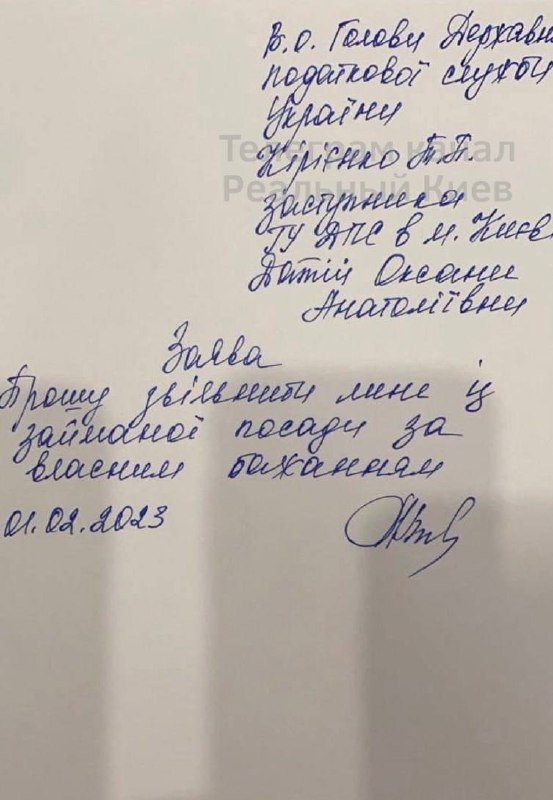 В.о. Голови Державн
податкової служби
України
Телеграм канал
Кірієнко Т.П.
Реальный Киев
заступника
ГУ ДПС в м. Києв
Датій Оксани
Анатоліївни
Заява
Прошу звільнити мене із
займаної посади за
власним бажанням
01.02.2023